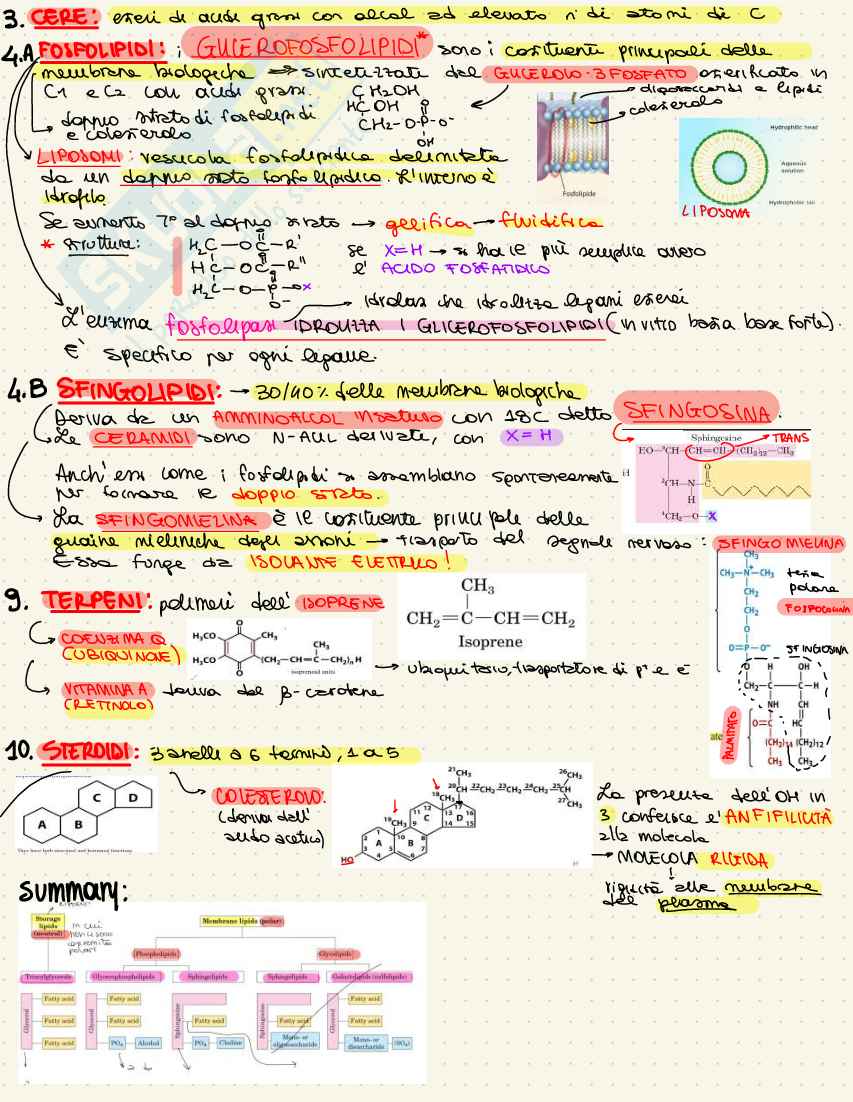 3. CERE: esteri di acidi grassi con alcol ad elevato n° di atomi di C
4.A FOSFOLIPIDI: i GLICEROFOSFOLIPIDI* sono i costituenti principali delle
membrane biologiche → sintetizzati dal GLICEROLO-3FOSFATO esterificato in
C1 e C2 con acidi grassi.
CH2OH
HC OH
CH2-O-P-O-
OH
→ doppio strato di fosfolipidi
e colesterolo
→ oligosaccaridi e lipidi
colesterolo
Fosfolipide
Hydrophilic head
Aqueous
solution
Hydrophobic tail
LIPOSOMA
LIPOSOMI: vescicola fosfolipidica delimitata
da un doppio strato fosfolipidico. L'interno è
idrofilo.
Se aumento T° al doppio strato → gelifica → fluidifica
* struttura:
H2C-O-C-R'
HC-O-C-R"
H2C-O-P-OX
O-
se X=H → si ha il più semplice ovvero
l' ACIDO FOSFATIDICO
idrolasi che idrolizza legami esterei
L'enzima fosfolipasi IDROLIZZA I GLICEROFOSFOLIPIDI (in vitro basta base forte).
E' specifico per ogni legame.
4.B SFINGOLIPIDI: → 30/40% delle membrane biologiche
Deriva da un AMMINOALCOL INSATURO con 18C detto SFINGOSINA.
→ Le CERAMIDI sono N-ACIL derivate, con X=H
Sphingosine
TRANS
HO-3CH-CH=CH-(CH2)12-CH3
H
2CH-N-C
O
H
1CH2-O-X
Anch'essi come i fosfolipidi si assemblano spontaneamente
per formare il doppio strato.
→ La SFINGOMIELINA è il costituente principale delle
guaine mieliniche degli assoni → trasporto del segnale nervoso:
Essa funge da ISOLANTE ELETTRICO!
SFINGO MIELINA
CH3
CH3-N+-CH3
CH2
CH2
O
O=P-O-
O
testa
polare
FOSFOCOLINA
SFINGOSINA
H
OH
CH2-C-C-H
NH
CH
O=C
HC
(CH2)14
(CH2)12
CH3
CH3
PALMITATO
ate
9. TERPENI: polimeri dell'ISOPRENE
CH3
CH2=C-CH=CH2
Isoprene
COENZIMA Q
(UBIQUINONE)
O
H3CO
CH3
CH3
H3CO
(CH2-CH=C-CH2)nH
O
isoprenoid units
→ ubiquitario, trasportatore di p+ e e-
VITAMINA A
(RETINOLO)
deriva dal β-carotene
10. STEROIDI: 3 anelli a 6 termini, 1 a 5
A B C D
COLESTEROLO:
(deriva dall'
acido acetico)
21 CH3
20 CH 22 CH2 23 CH2 24 CH2 25 CH
26 CH3
27 CH3
18 CH3
19 CH3
HO
A B C D
1 2 3 4 5 6 7 8 9 10 11 12 13 14 15 16 17
La presenza dell'OH in
3 conferisce l'ANFIFILICITÀ
alla molecola
→ MOLECOLA RIGIDA
rigidità alle membrane
del plasma
Summary:
Storage
lipids
(neutral)
in cui
non ci sono
Membrane lipids (polar)
Phospholipids
Glycolipids
Triacylglycerols
Glycerophospholipids
Sphingolipids
Sphingolipids
Galactolipids (sulfolipids)
Glycerol
Fatty acid
Fatty acid
Fatty acid
Glycerol
Fatty acid
Fatty acid
PO4
Alcohol
Sphingosine
Fatty acid
PO4
Choline
Sphingosine
Fatty acid
Mono- or
oligosaccharide
Glycerol
Fatty acid
Fatty acid
Mono- or
disaccharide
(SO4)